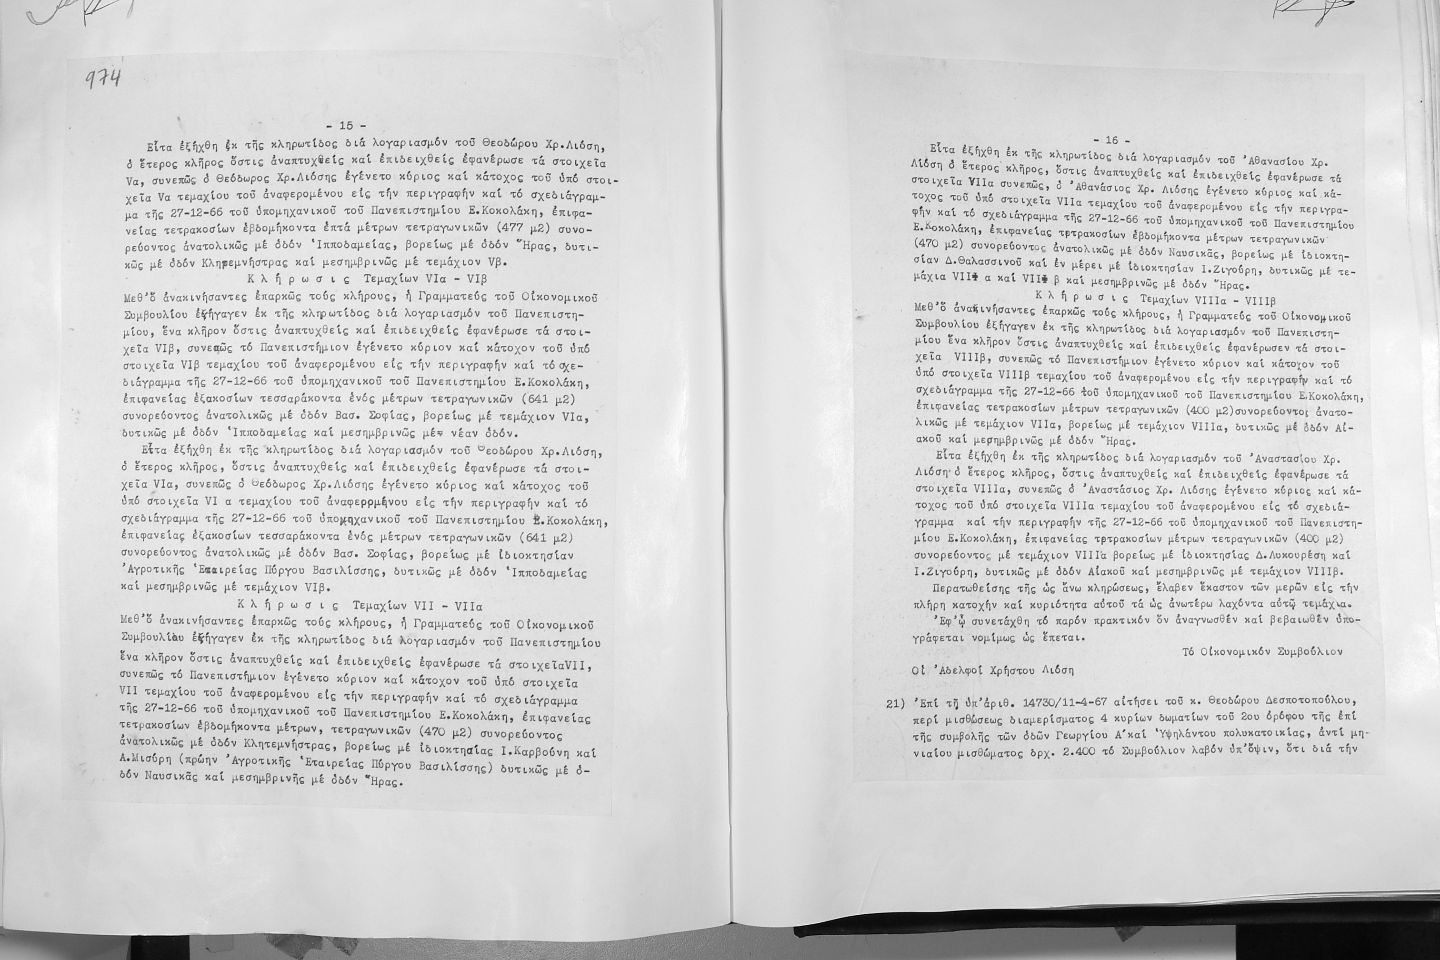 974
- 15 -
Εἶτα ἐξήχθη ἐκ τῆς κληρωτίδος διά λογαριασμόν τοῦ Θεοδώρου Χρ.Λιόση,
ὁ ἕτερος κλῆρος ὅστις ἀναπτυχθείς καί ἐπιδειχθείς ἐφανέρωσε τά στοιχεῖα
Vα, συνεπῶς ὁ Θεόδωρος Χρ.Λιόσης ἐγένετο κύριος καί κάτοχος τοῦ ὑπό στοι-
χεῖα Vα τεμαχίου τοῦ ἀναφερομένου εἰς τήν περιγραφήν καί τό σχεδιάγραμ-
μα τῆς 27-12-66 τοῦ ὑπομηχανικοῦ τοῦ Πανεπιστημίου Ε.Κοκολάκη, ἐπιφα-
νείας τετρακοσίων ἑβδομήκοντα ἑπτά μέτρων τετραγωνικῶν (477 μ2) συνο-
ρεύοντος ἀνατολικῶς μέ ὁδόν Ἱπποδαμείας, βορείως μέ ὁδόν Ἥρας, δυτι-
κῶς μέ ὁδόν Κλητεμνήστρας καί μεσημβρινῶς μέ τεμάχιον Vβ.
Κ λ ή ρ ω σ ι ς Τεμαχίων VIα - VIβ
Μεθ'ὅ ἀνακινήσαντες ἐπαρκῶς τούς κλήρους, ἡ Γραμματεύς τοῦ Οἰκονομικοῦ
Συμβουλίου ἐξήγαγεν ἐκ τῆς κληρωτίδος διά λογαριασμόν τοῦ Πανεπιστη-
μίου, ἕνα κλῆρον ὅστις ἀναπτυχθείς καί ἐπιδειχθείς ἐφανέρωσε τά στοι-
χεῖα VIβ, συνεπῶς τό Πανεπιστήμιον ἐγένετο κύριον καί κάτοχον τοῦ ὑπό
στοιχεῖα VIβ τεμαχίου τοῦ ἀναφερομένου εἰς τήν περιγραφήν καί τό σχε-
διάγραμμα τῆς 27-12-66 τοῦ ὑπομηχανικοῦ τοῦ Πανεπιστημίου Ε.Κοκολάκη,
ἐπιφανείας ἑξακοσίων τεσσαράκοντα ἑνός μέτρων τετραγωνικῶν (641 μ2)
συνορεύοντος ἀνατολικῶς μέ ὁδόν Βασ. Σοφίας, βορείως μέ τεμάχιον VIα,
δυτικῶς μέ ὁδόν Ἱπποδαμείας καί μεσημβρινῶς μέ νέαν ὁδόν.
Εἶτα ἐξήχθη ἐκ τῆς κληρωτίδος διά λογαριασμόν τοῦ Θεοδώρου Χρ.Λιόση,
ὁ ἕτερος κλῆρος, ὅστις ἀναπτυχθείς καί ἐπιδειχθείς ἐφανέρωσε τά στοι-
χεῖα VIα, συνεπῶς ὁ Θεόδωρος Χρ.Λιόσης ἐγένετο κύριος καί κάτοχος τοῦ
ὑπό στοιχεῖα VI α τεμαχίου τοῦ ἀναφερομένου εἰς τήν περιγραφήν καί τό
σχεδιάγραμμα τῆς 27-12-66 τοῦ ὑπομηχανικοῦ τοῦ Πανεπιστημίου Ε.Κοκολάκη,
ἐπιφανείας ἑξακοσίων τεσσαράκοντα ἑνός μέτρων τετραγωνικῶν (641 μ2)
συνορεύοντος ἀνατολικῶς μέ ὁδόν Βασ. Σοφίας, βορείως μέ ἰδιοκτησίαν
Ἀγροτικῆς Ἑταιρείας Πύργου Βασιλίσσης, δυτικῶς μέ ὁδόν Ἱπποδαμείας
καί μεσημβρινῶς μέ τεμάχιον VIβ.
Κ λ ή ρ ω σ ι ς Τεμαχίων VII - VIIα
Μεθ'ὅ ἀνακινήσαντες ἐπαρκῶς τούς κλήρους, ἡ Γραμματεύς τοῦ Οἰκονομικοῦ
Συμβουλίου ἐξήγαγεν ἐκ τῆς κληρωτίδος διά λογαριασμόν τοῦ Πανεπιστημίου
ἕνα κλῆρον ὅστις ἀναπτυχθείς καί ἐπιδειχθείς ἐφανέρωσε τά στοιχεῖαVII,
συνεπῶς τό Πανεπιστήμιον ἐγένετο κύριον καί κάτοχον τοῦ ὑπό στοιχεῖα
VII τεμαχίου τοῦ ἀναφερομένου εἰς τήν περιγραφήν καί τό σχεδιάγραμμα
τῆς 27-12-66 τοῦ ὑπομηχανικοῦ τοῦ Πανεπιστημίου Ε.Κοκολάκη, ἐπιφανείας
τετρακοσίων ἑβδομήκοντα μέτρων, τετραγωνικῶν (470 μ2) συνορεύοντος
ἀνατολικῶς μέ ὁδόν Κλητεμνήστρας, βορείως μέ ἰδιοκτησίας Ι.Καρβούνη καί
Α.Μισύρη (πρώην Ἀγροτικῆς Ἑταιρείας Πύργου Βασιλίσσης) δυτικῶς μέ ὁ-
δόν Ναυσικᾶς καί μεσημβρινῆς μέ ὁδόν Ἥρας.
- 16 -
Εἶτα ἐξήχθη ἐκ τῆς κληρωτίδος διά λογαριασμόν τοῦ Ἀθανασίου Χρ.
Λιόση ὁ ἕτερος κλῆρος, ὅστις ἀναπτυχθείς καί ἐπιδειχθείς ἐφανέρωσε τά
στοιχεῖα VIIα συνεπῶς, ὁ Ἀθανάσιος Χρ. Λιόσης ἐγένετο κύριος καί κά-
τοχος τοῦ ὑπό στοιχεῖα VIIα τεμαχίου τοῦ ἀναφερομένου εἰς τήν περιγρα-
φήν καί τό σχεδιάγραμμα τῆς 27-12-66 τοῦ ὑπομηχανικοῦ τοῦ Πανεπιστημίου
Ε.Κοκολάκη, ἐπιφανείας τετρακοσίων ἑβδομήκοντα μέτρων τετραγωνικῶν
(470 μ2) συνορεύοντος ἀνατολικῶς μέ ὁδόν Ναυσικᾶς, βορείως μέ ἰδιοκτη-
σίαν Δ.Θαλασσινοῦ καί ἐν μέρει μέ ἰδιοκτησίαν Ι.Ζιγούρη, δυτικῶς μέ τε-
μάχια VIII α καί VIII β καί μεσημβρινῶς μέ ὁδόν Ἥρας.
Κ λ ή ρ ω σ ι ς Τεμαχίων VIIIα - VIIIβ
Μεθ'ὅ ἀνακινήσαντες ἐπαρκῶς τούς κλήρους, ἡ Γραμματεύς τοῦ Οἰκονομικοῦ
Συμβουλίου ἐξήγαγεν ἐκ τῆς κληρωτίδος διά λογαριασμόν τοῦ Πανεπιστη-
μίου ἕνα κλῆρον ὅστις ἀναπτυχθείς καί ἐπιδειχθείς ἐφανέρωσεν τά στοι-
χεῖα VIIIβ, συνεπῶς τό Πανεπιστήμιον ἐγένετο κύριον καί κάτοχον τοῦ
ὑπό στοιχεῖα VIIIβ τεμαχίου τοῦ ἀναφερομένου εἰς τήν περιγραφήν καί τό
σχεδιάγραμμα τῆς 27-12-66 τοῦ ὑπομηχανικοῦ τοῦ Πανεπιστημίου Ε.Κοκολάκη,
ἐπιφανείας τετρακοσίων μέτρων τετραγωνικῶν (400 μ2)συνορεύοντος ἀνατο-
λικῶς μέ τεμάχιον VIIα, βορείως μέ τεμάχιον VIIIα, δυτικῶς μέ ὁδόν Αἰ-
ακοῦ καί μεσημβρινῶς μέ ὁδόν Ἥρας.
Εἶτα ἐξήχθη ἐκ τῆς κληρωτίδος διά λογαριασμόν τοῦ Ἀναστασίου Χρ.
Λιόση ὁ ἕτερος κλῆρος, ὅστις ἀναπτυχθείς καί ἐπιδειχθείς ἐφανέρωσε τά
στοιχεῖα VIIIα, συνεπῶς ὁ Ἀναστάσιος Χρ. Λιόσης ἐγένετο κύριος καί κά-
τοχος τοῦ ὑπό στοιχεῖα VIIIα τεμαχίου τοῦ ἀναφερομένου εἰς τό σχεδιά-
γραμμα καί τήν περιγραφήν τῆς 27-12-66 τοῦ ὑπομηχανικοῦ τοῦ Πανεπιστη-
μίου Ε.Κοκολάκη, ἐπιφανείας τετρακοσίων μέτρων τετραγωνικῶν (400 μ2)
συνορεύοντος μέ τεμάχιον VIIIα βορείως μέ ἰδιοκτησίας Δ.Λυκουρέση καί
Ι.Ζιγούρη, δυτικῶς μέ ὁδόν Αἰακοῦ καί μεσημβρινῶς μέ τεμάχιον VIIIβ.
Περατωθείσης τῆς ὡς ἄνω κληρώσεως, ἔλαβεν ἕκαστον τῶν μερῶν εἰς τήν
πλήρη κατοχήν καί κυριότητα αὐτοῦ τά ὡς ἀνωτέρω λαχόντα αὐτῷ τεμάχια.
Ἐφ'ᾧ συνετάχθη τό παρόν πρακτικόν ὅν ἀναγνωσθέν καί βεβαιωθέν ὑπο-
γράφεται νομίμως ὡς ἕπεται.
Τό Οἰκονομικόν Συμβούλιον
Οἱ Ἀδελφοί Χρήστου Λιόση
21) Ἐπί τῇ ὑπ'ἀριθ. 14730/11-4-67 αἰτήσει τοῦ κ. Θεοδώρου Δεσποτοπούλου,
περί μισθώσεως διαμερίσματος 4 κυρίων δωματίων τοῦ 2ου ὀρόφου τῆς ἐπί
τῆς συμβολῆς τῶν ὁδῶν Γεωργίου Α΄καί Ὑψηλάντου πολυκατοικίας, ἀντί μη-
νιαίου μισθώματος δρχ. 2.400 τό Συμβούλιον λαβόν ὑπ'ὄψιν, ὅτι διά τήν